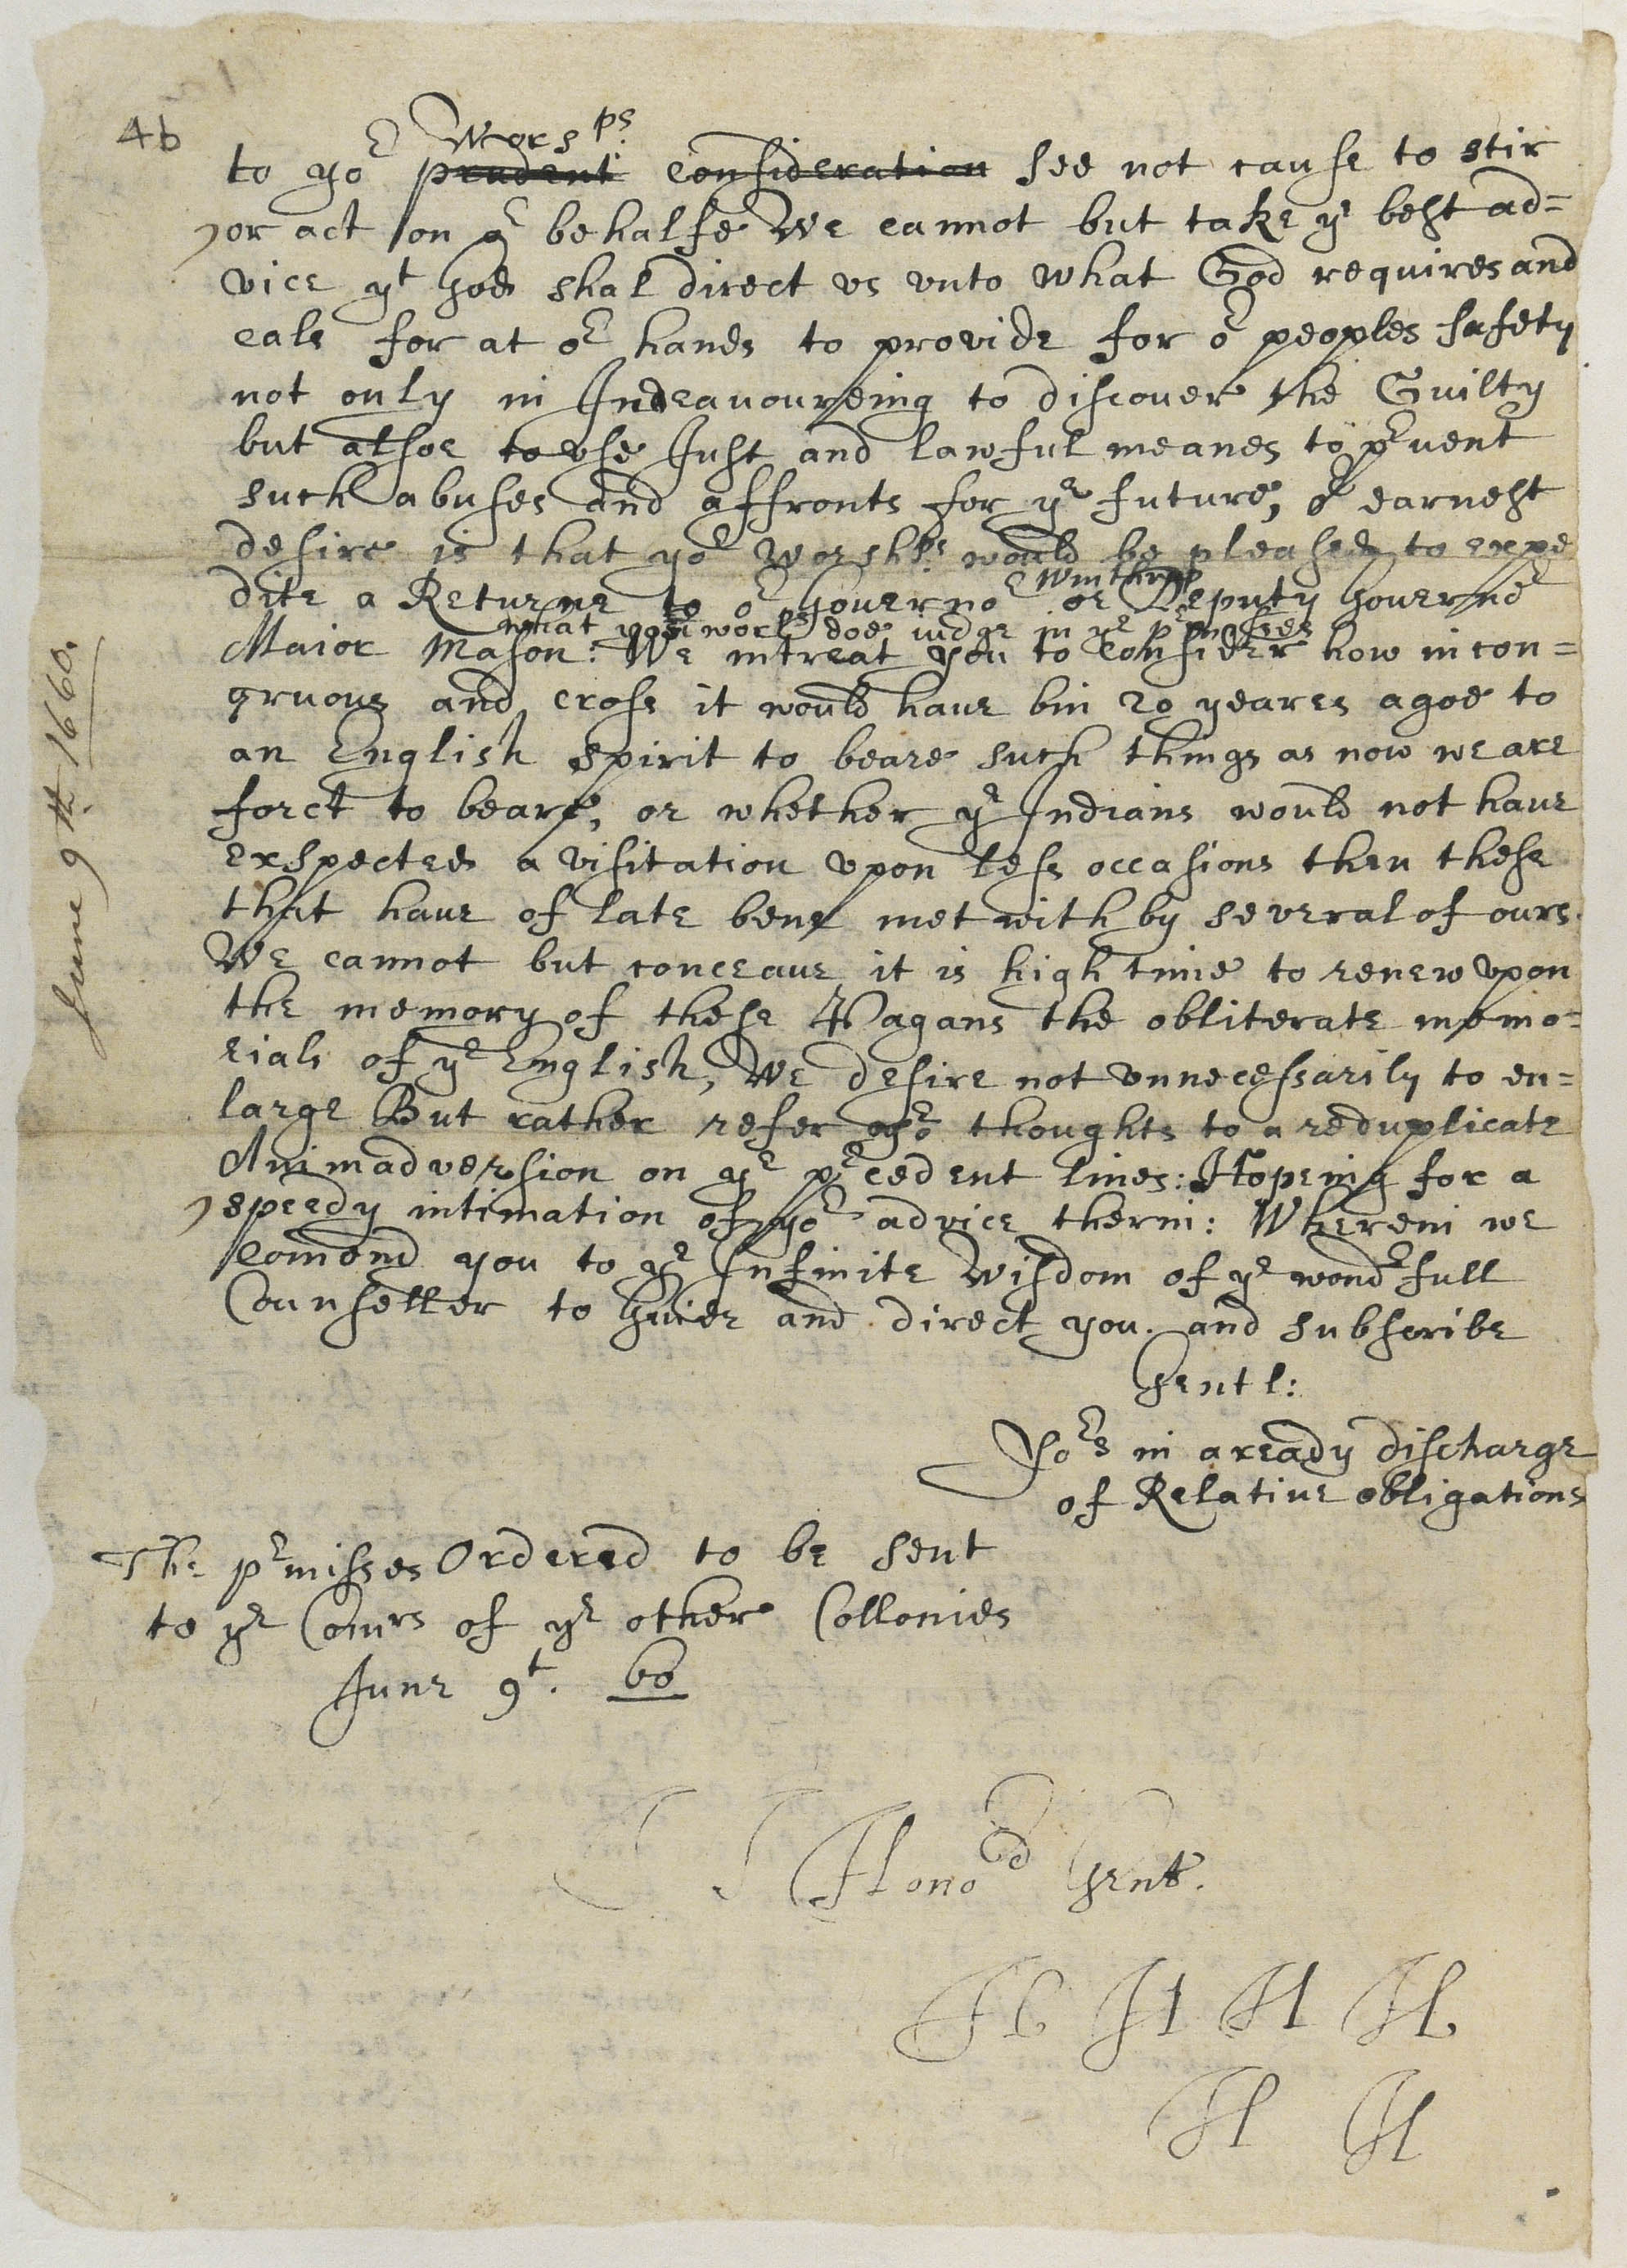 4b
Worsps
to yor prudent consideration see not cause to stir
or act on or behalfe We cannot but take ye best ad=
vice yt God shal direct vs vnto what God requires and
cals for at or hands to provide for or peoples safety
not only in Indeavoureing to discouer the Guilty
but alsoe to vse Just and lawful meanes to pruent
such abuses and affronts for ye future, or earnest
desire is that yor worshps would be pleased to expe
Winthrop
dite a Returne to or Gouernor or Deputy Gouernor
what yor worps doe iudge in ye prmisses
Maior Mason: We intreat you to Consider how incon=
gruous and cross it would haue bin 20 yeares agoe to
an English spirit to beare such things as now we are
forct to beare, or whether ye Indians would not haue
exspected a visitation vpon less occasions then these
that haue of late bene met with by several of ours.
We cannot but conceaue it is high time to renew vpon
the memory of these Pagans the obliterate memo=
rials of ye English, We desire not vnnecessarily to en=
large But rather refer yor thoughts to a reduplicate
Animadversion on ye prcedent lines: Hopeing for a
speedy intimation of yor advice therin: Wherein we
Comend you to ye Infinite Wisdom of ye wondrfull
Counseller to Guide and direct you. and subscribe
Gentl:
Yors in a ready discharge
of Relatiue obligations
The prmisses Ordered to be sent
to ye Comrs of ye other Collonies
June 9t. 60
Honord Gent.
H H H H
H H
June 9th 1660.